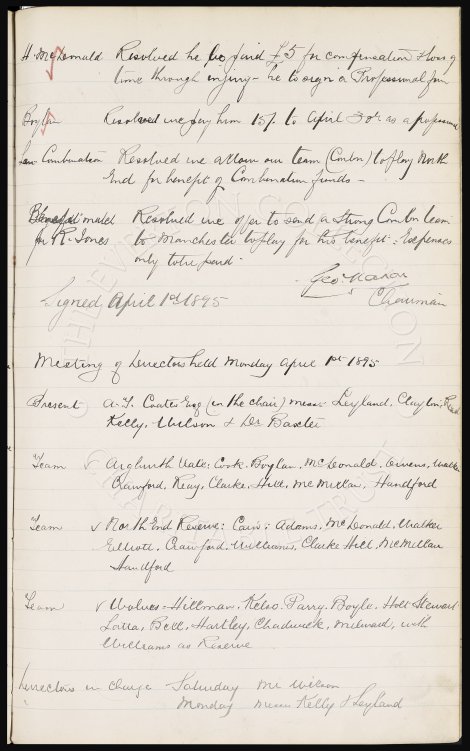 H. McDonald Resolved he be paid £5 for compensation & loss of
time through injury - he to sign a Professional form
Boylan Resolved we pay him 15/- to April 30th as a professional
Combination Resolved we allow our team (Combn) to play North
End for benefit of Combination funds -
Benefit match Resolved we offer to send a strong Combn team
for R. Jones to Manchester to play for his benefit. Expenses
only to be paid -
Geo. Mahon
Chairman
Signed April 1st 1895
Meeting of Directors held Monday April 1st 1895
Present A. T. Coates Esq (in the chair) Messrs Leyland, Clayton, Read
Kelly, Wilson & Dr Baxter
Team v Aigburth Vale: Cook. Boylan. McDonald. Owens. Walker
Crawford. Reay. Clarke. Hill. McMillan. Handford
Team v North End Reserve: Cain: Adams. McDonald. Walker
Elliott. Crawford. Williams. Clarke Hill. McMillan
Handford
Team v Wolves - Hillman. Kelso. Parry. Boyle. Holt Stewart
Latta. Bell. Hartley. Chadwick. Milward, with
Williams as Reserve
Directors in charge Saturday Mr Wilson
" Monday Messrs Kelly & Leyland
THE EVERTON COLLECTION